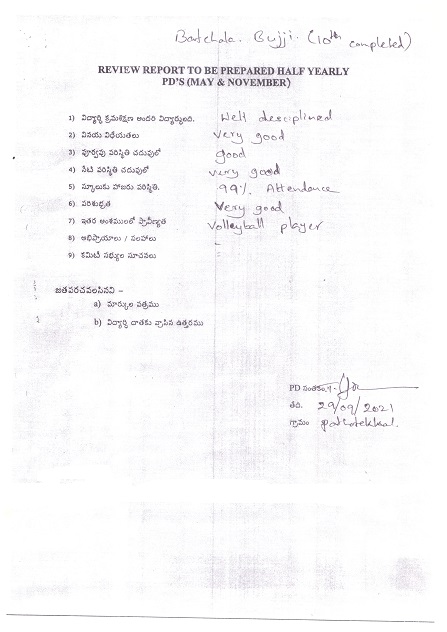 Batchala. Bujji. (10th completed)
REVIEW REPORT TO BE PREPARED HALF YEARLY
PD'S (MAY & NOVEMBER)
1) విద్యార్థి క్రమశిక్షణ అందరి విద్యార్థులది. Well desciplined
2) వినయ విధేయతలు Very good
3) పూర్వపు పరిస్థితి చదువులో good
4) నేటి పరిస్థితి చదువులో very good
5) స్కూలుకు హాజరు పరిస్థితి. 99% Attendance
6) పరిశుభ్రత Very good
7) ఇతర అంశములలో ప్రావీణ్యత Volleyball player
8) అభిప్రాయాలు / సలహాలు -
9) కమిటీ సభ్యుల సూచనలు
జతపరచవలసినవి –
a) మార్కుల పత్రము
b) విద్యార్థి దాతకు వ్రాసిన ఉత్తరము
PD సంతకం
తేది. 29/09/2021
గ్రామం